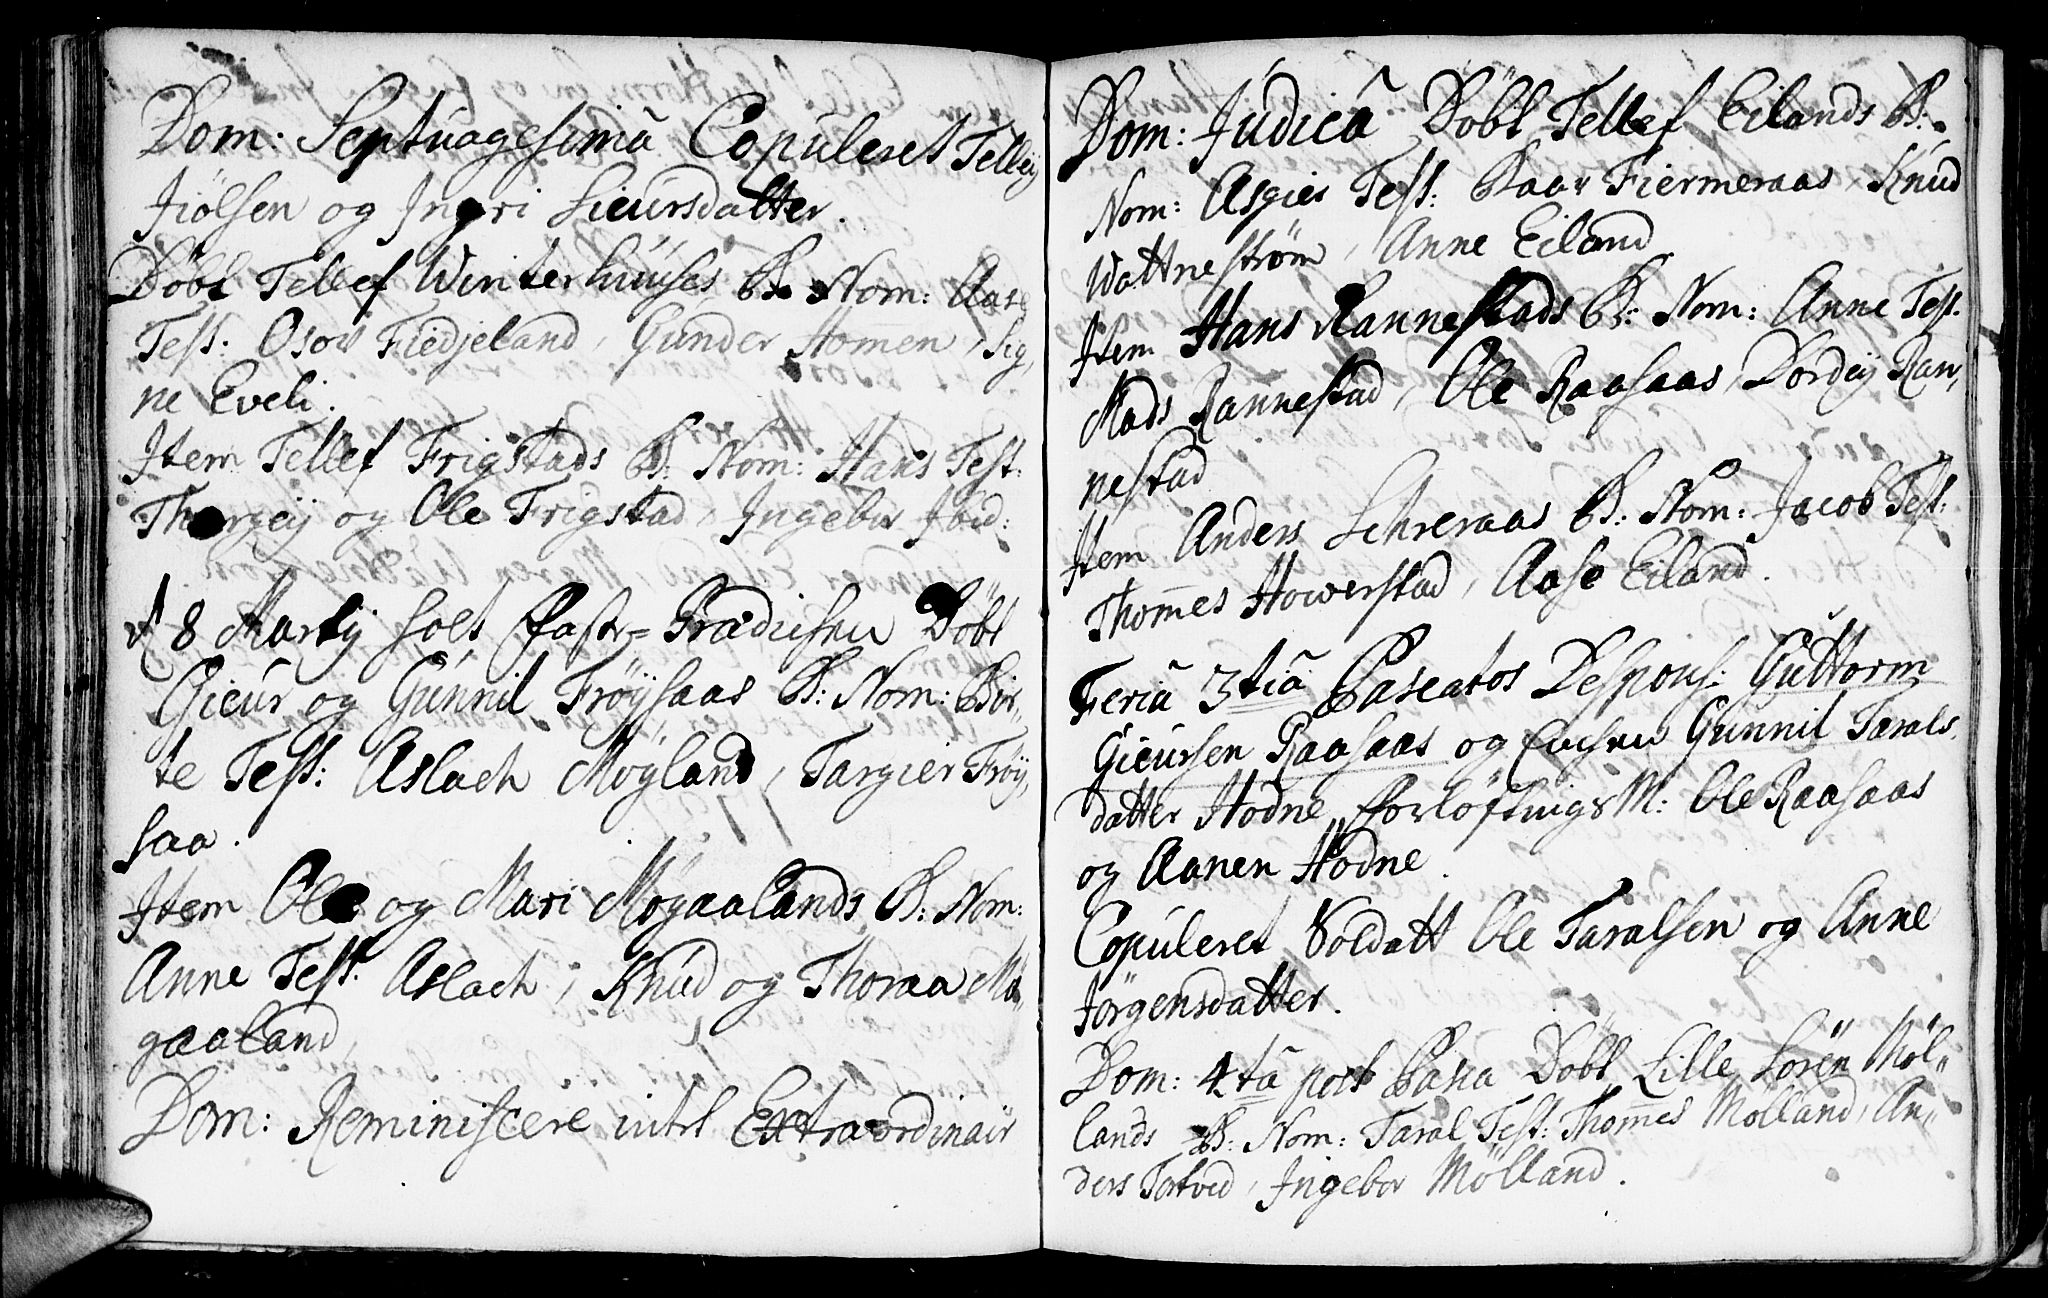 Dom: Septuagesima Copuleret Tellej
Jiølsen og Ingri Sieursdatter.
Døbt Tellef Winterhuuses B: Nom: Aase
Test: Osov Fiedjeland, Gunder Homen, Sig,
ne Eveli.
Item Tellef Frigstads B: Nom: Hans Test:
Thorgeij og Ole Frigstad, Ingebor Ibid:
d 8 Martij holt Faste-Prædicken Døbt
Gieur og Gunnil Frøysaas B: Nom: Bir,,
te Test: Aslach Møgland, Targier Frøy,,
saa.
Item Ole og Mari Møgaalands B: Nom:
Anne Test: Aslach, Knud og Thoraa Mø,,
gaaland,
Dom: Reminiscere intet Extraordinair
Dom: Judica Døbt Tellef Eilands B:
Nom: Asgier Test: Baar Fiermeraas, Knud
Wattnestrøm, Anne Eiland
Item Hans Rannestads B: Nom: Anne Test.
Mads Rannestad, Ole Raasaas, Dordej Ran,,
nestad
Item Anders Schreraas B: Nom: Jacob Test:
Thomes Howerstad, Aase Eiland.
Feria 3tia Pascatos Despons: Guttorm
Gieursen Raasaas og Gunnil Tarals,
datter Hodne, Forløftnings M: Ole Raasaas
og Aanen Hodne.
Copuleret Soldatt Ole Taralsen og Anne
Jørgensdatter.
Dom: 4ta post Pasca Døbt Lille Søren Møl,,
lands B: Nom: Taral Test: Thomes Mølland, An,,
ders Tortved, Ingebor Mølland.